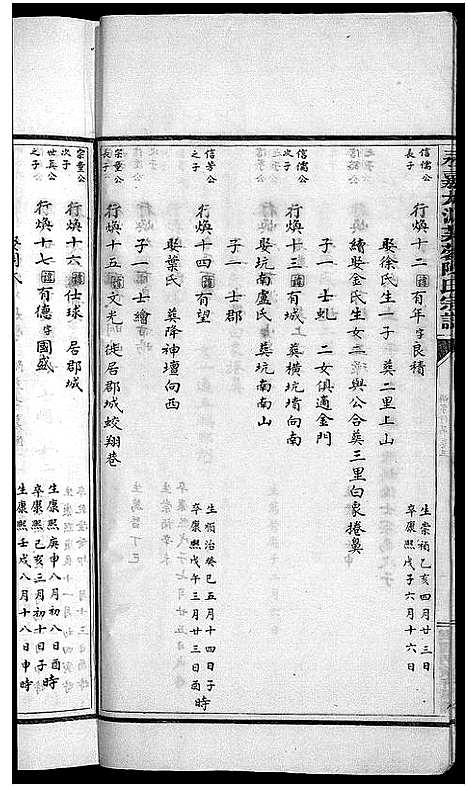 信儒公
長子
行煥十二 諱 百年 字 良積
生崇禎乙亥四月廿三日
卒康熙戊子六月十六日
娶徐氏生一子 葬二里上山
續娶金氏生女二 與公合葬三里白象捲鼻
子一 士虬 二女俱適金門
信儒公
次子
行煥十三 諱 有城 葬橫坑堵向南
娶坑南盧氏 葬坑南南山
子一 士郡
信芳公
之子
行煥十四 諱 有望
生順治癸巳五月十四日子時
卒康熙戊午三月廿三日酉時
娶葉氏 葬降神壇向西
子一 士繪
宗臺公
長子
行煥十五 諱 文光 徙居郡城蛟翔巷
宗臺公
次子
行煥十六 諱 仕球 居郡城
世英公
之子
行煥十七 諱 有德 字 國盛
生康熙庚申八月初八日酉時
卒康熙己亥三月初十日子時
生康熙壬戌八月十八日申時